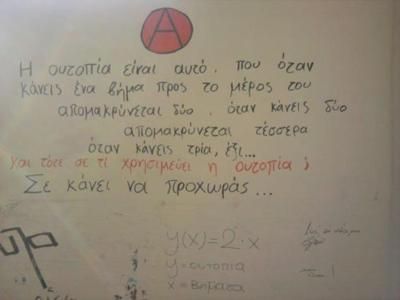 A
Η ουτοπία είναι αυτό, που όταν
κάνεις ένα βήμα προς το μέρος του
απομακρύνεται δύο, όταν κάνεις δύο
απομακρύνεται τέσσερα
όταν κάνεις τρία, έξι...
Και τότε σε τί χρησιμεύει η ουτοπία;
Σε κάνει να προχωράς...
y(x)=2·x
y=ουτοπία
x=βήματα